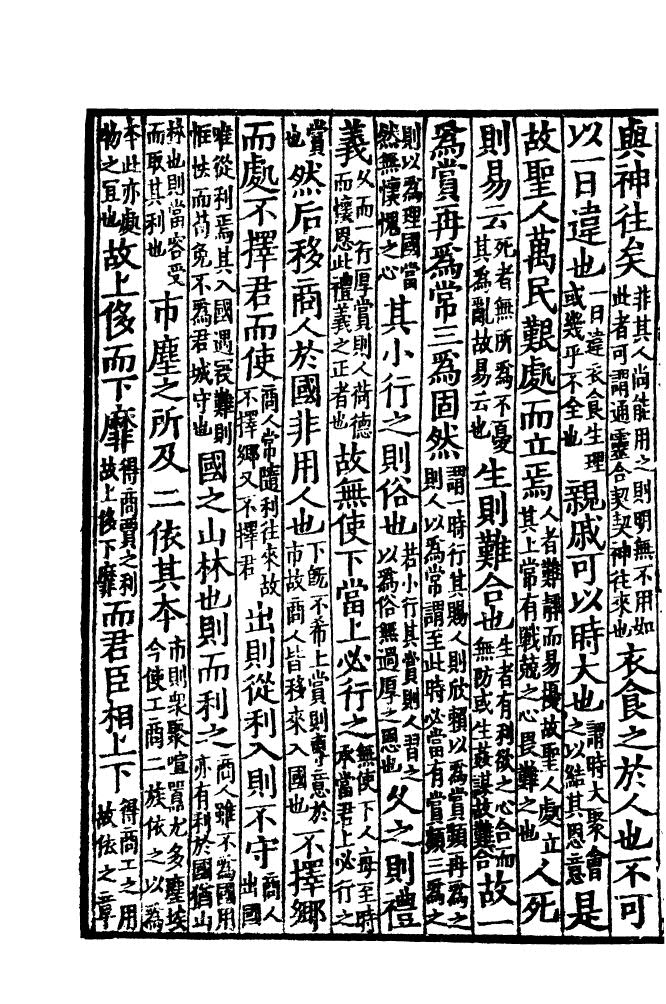 與神往矣非其人尚能用之則明無不用如此者可謂通靈合契契神往來也衣食之於人也不可
以一日違也一日違衣食生理或幾乎不全也親戚可以時大也謂時大聚會之以結其恩意是
故聖人萬民艱處而立焉人者難靜而易擾故聖人處立其上常有戰兢之心畏難之也人死
則易云死者無所爲不憂其爲亂故易云也生則難合也生者有利欲之心合而無防或生姦謀故難合故一
爲賞再爲常三爲固然謂一時行其賜人則欣賴以爲賞頻再爲之則人以爲常謂至此時必當有賞頻三爲之
則以爲理國當然無懷愧之心其小行之則俗也若小行其賞則人習之以爲俗無過厚之恩也久之則禮
義久而一行厚賞則人荷德而懷恩此禮義之正者也故無使下當上必行之無使下人每至時承當君上必行之
賞也然后移商人於國非用人也下旣不希上賞則專意於市故商人皆移來入國也不擇鄉
而處不擇君而使商人常隨利往來故不擇鄉又不擇君出則從利入則不守商人出國
唯從利焉其入國遇畏難則恇怯而苟免不爲君城守也國之山林也則而利之商人雖不爲國用亦有利於國猶山
林也則當容受而取其利也市塵之所及二依其本市則衆聚喧囂尤多塵埃今使工商二族依之以爲
本此亦處物之宜也故上侈而下靡得商賈之利故上侈下靡而君臣相上下得商工之用故依之章